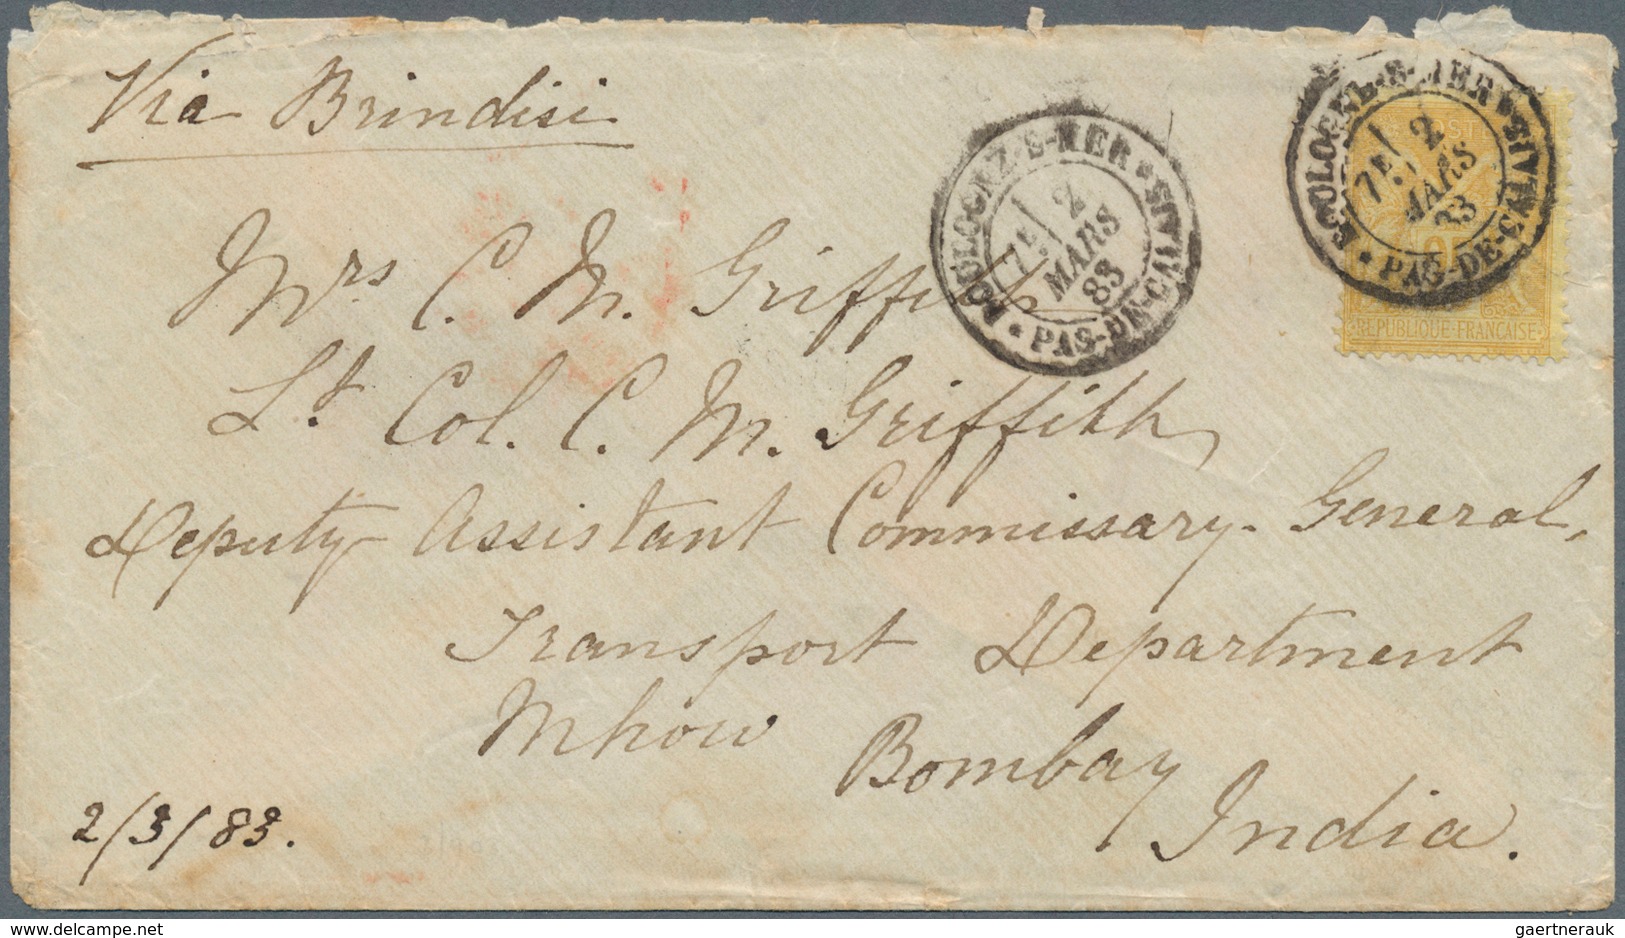 Via Brindisi
BOULOGNE-S-MER * PAS-DE-CALAIS *
7E
2
MARS
83
BOULOGNE-S-MER * PAS-DE-CALAIS *
7E
2
MARS
83
25
REPUBLIQUE FRANÇAISE
Mrs C. M. Griffith
Lt Col. C. M. Griffith,
Deputy Assistant Commissary-General,
Transport Department
Mhow
Bombay
India.
2/3/83.
www.delcampe.net
gaertnerauk